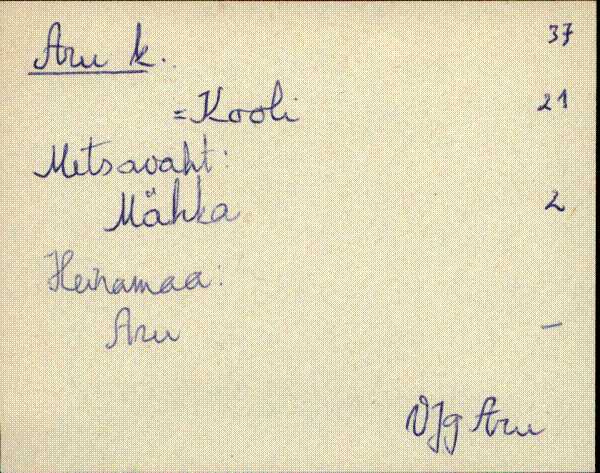 Aru k. 37
=Kooli 21
Metsavaht:
Mähka 2
Heinamaa:
Aru –
VJg Aru